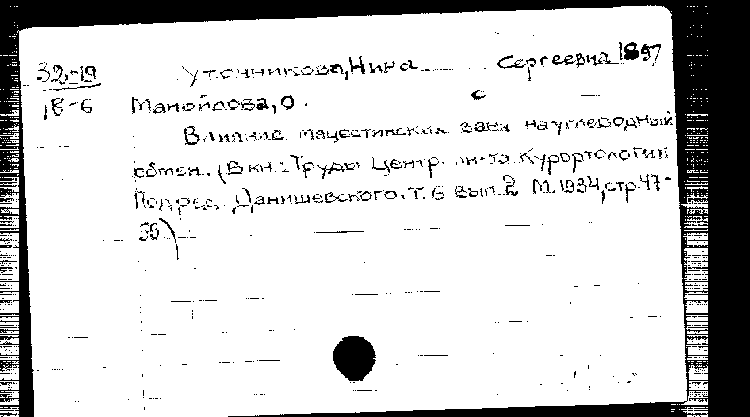 32-19 Уточникова, Нина Сергеевна 1897
18-6 Манойлова, О. с
Влияние мацестинских ванн на углеводный
обмен. (В кн.: Труды Центр. ин-та Курортологии
Под ред. Данишевского. Т. 6 вып. 2 М. 1934, стр. 47-
56)